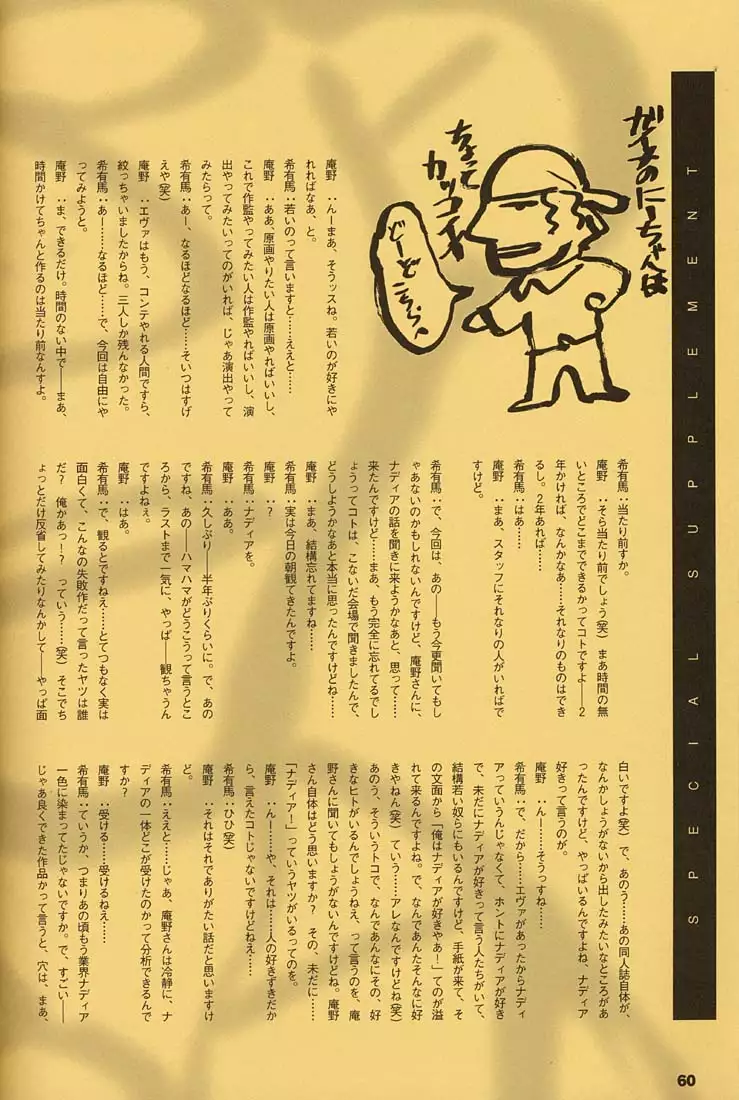 SPECIAL SUPPLEMENT
ガイナのにーちゃんは
ちょって
カッコイイ
庵野　：んーまあ、そうッスね。若いのが好きにや
れればなあ、と。
希有馬：若いのって言いますと……ええと……
庵野　：ああ、原画やりたい人は原画やればいいし、
これで作監やってみたい人は作監やればいいし、演
出やってみたいってのがいれば、じゃあ演出やって
みたらって。
希有馬：あー、なるほどなるほど……そいつはすげ
えや（笑）
庵野　：エヴァはもう、コンテやれる人間ですら、
絞っちゃいましたからね。三人しか残んなかった。
希有馬：あー……なるほど……で、今回は自由にや
ってみようと。
庵野　：ま、できるだけ。時間のない中で──まあ、
時間かけてちゃんと作るのは当たり前なんすよ。
希有馬：当たり前すか。
庵野　：そら当たり前でしょう（笑）　まあ時間の無
いところでどこまでできるかってコトですよ──2
年かければ、なんかなあ……それなりのものはでき
るし。2年あれば……
希有馬：はあ……
庵野　：まあ、スタッフにそれなりの人がいればで
すけど。
希有馬：で、今回は、あの──もう今更聞いてもし
ゃあないのかもしれないんですけど、庵野さんに、
ナディアの話を聞きに来ようかなあと、思って……
来たんですけど……まあ、もう完全に忘れてるでし
ょうってコトは、こないだ会場で聞きましたんで、
どうしようかなあと本当に思ったんですけどね──
庵野　：まあ、結構忘れてますね──
希有馬：実は今日の朝観てきたんですよ。
庵野　：？
希有馬：ナディアを。
庵野　：ああ。
希有馬：久しぶり──半年ぶりくらいに。で、あの
ですね、あの──ハマハマがどうこうって言うとこ
ろから、ラストまで一気に、やっぱ──観ちゃうん
ですよねぇ。
庵野　：はあ。
希有馬：で、観るとですねえ……とてつもなく実は
面白くて、こんなの失敗作だって言ったヤツは誰
だ？　俺かあっ！？　っていう……（笑）　そこでち
ょっとだけ反省してみたりなんかして──やっぱ面
白いですよ（笑）　で、あのう……あの同人誌自体が、
なんかしょうがないから出したみたいなところがあ
ったんですけど、やっぱいるんですよね、ナディア
好きって言うのが。
庵野　：んー……そうっすね……
希有馬：で、だから……エヴァがあったからナディ
アっていうんじゃなくて、ホントにナディアが好き
で、未だにナディアが好きって言う人たちがいて、
結構若い奴らにもいるんですけど、手紙が来て、そ
の文面から「俺はナディアが好きやあ！」てのが溢
れて来るんですよね。で、なんであんたそんなに好
きやねん（笑）ていう……アレなんですけどね（笑）
あのう、そういうトコで、なんであんなにその、好
きなヒトがいるんでしょうねえ、って言うのを、庵
野さんに聞いてもしょうがないんですけどね。庵野
さん自体はどう思いますか？　その、未だに……
「ナディア！」っていうヤツがいるってのを。
庵野　：んー……や、それは……人の好きずきだか
ら、言えたコトじゃないですけどねえ……
希有馬：ひひ（笑）
庵野　：それはそれでありがたい話だと思いますけ
ど。
希有馬：ええと……じゃあ、庵野さんは冷静に、ナ
ディアの一体どこが受けたのかって分析できるんで
すか？
庵野　：受ける……受けるねえ……
希有馬：ていうか、つまりあの頃もう業界ナディア
一色に染まってたじゃないですか。で、すごい──
じゃあ良くできた作品かって言うと、穴は、まあ、
60